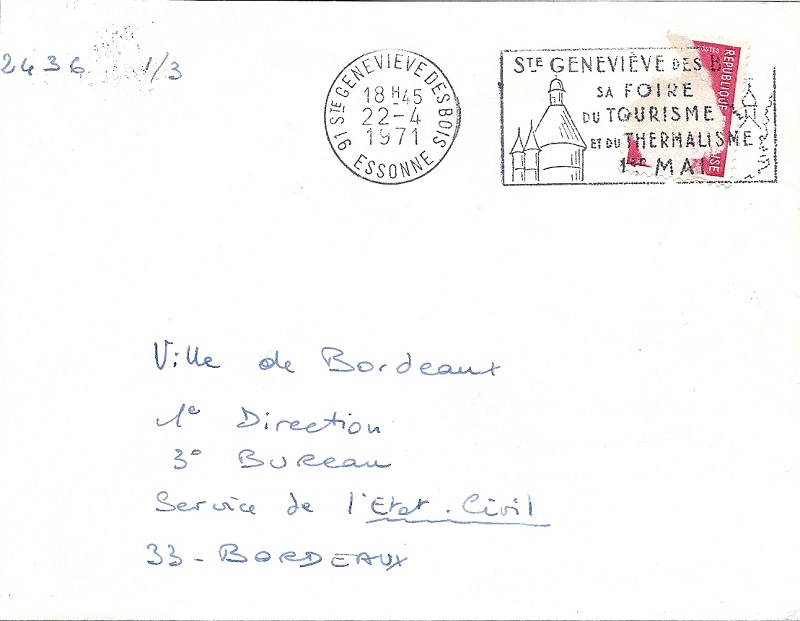 2436 1/3
91 STE GENEVIEVE DES BOIS
18 H 45
22-4
1971
ESSONNE
STE GENEVIÈVE DES
SA FOIRE
DU TOURISME
ET DU THERMALISME
1ER MAI
POSTES
REPUBLIQUE
Ville de Bordeaux
1e Direction
3e Bureau
Service de l'Etat-Civil
33 - BORDEAUX